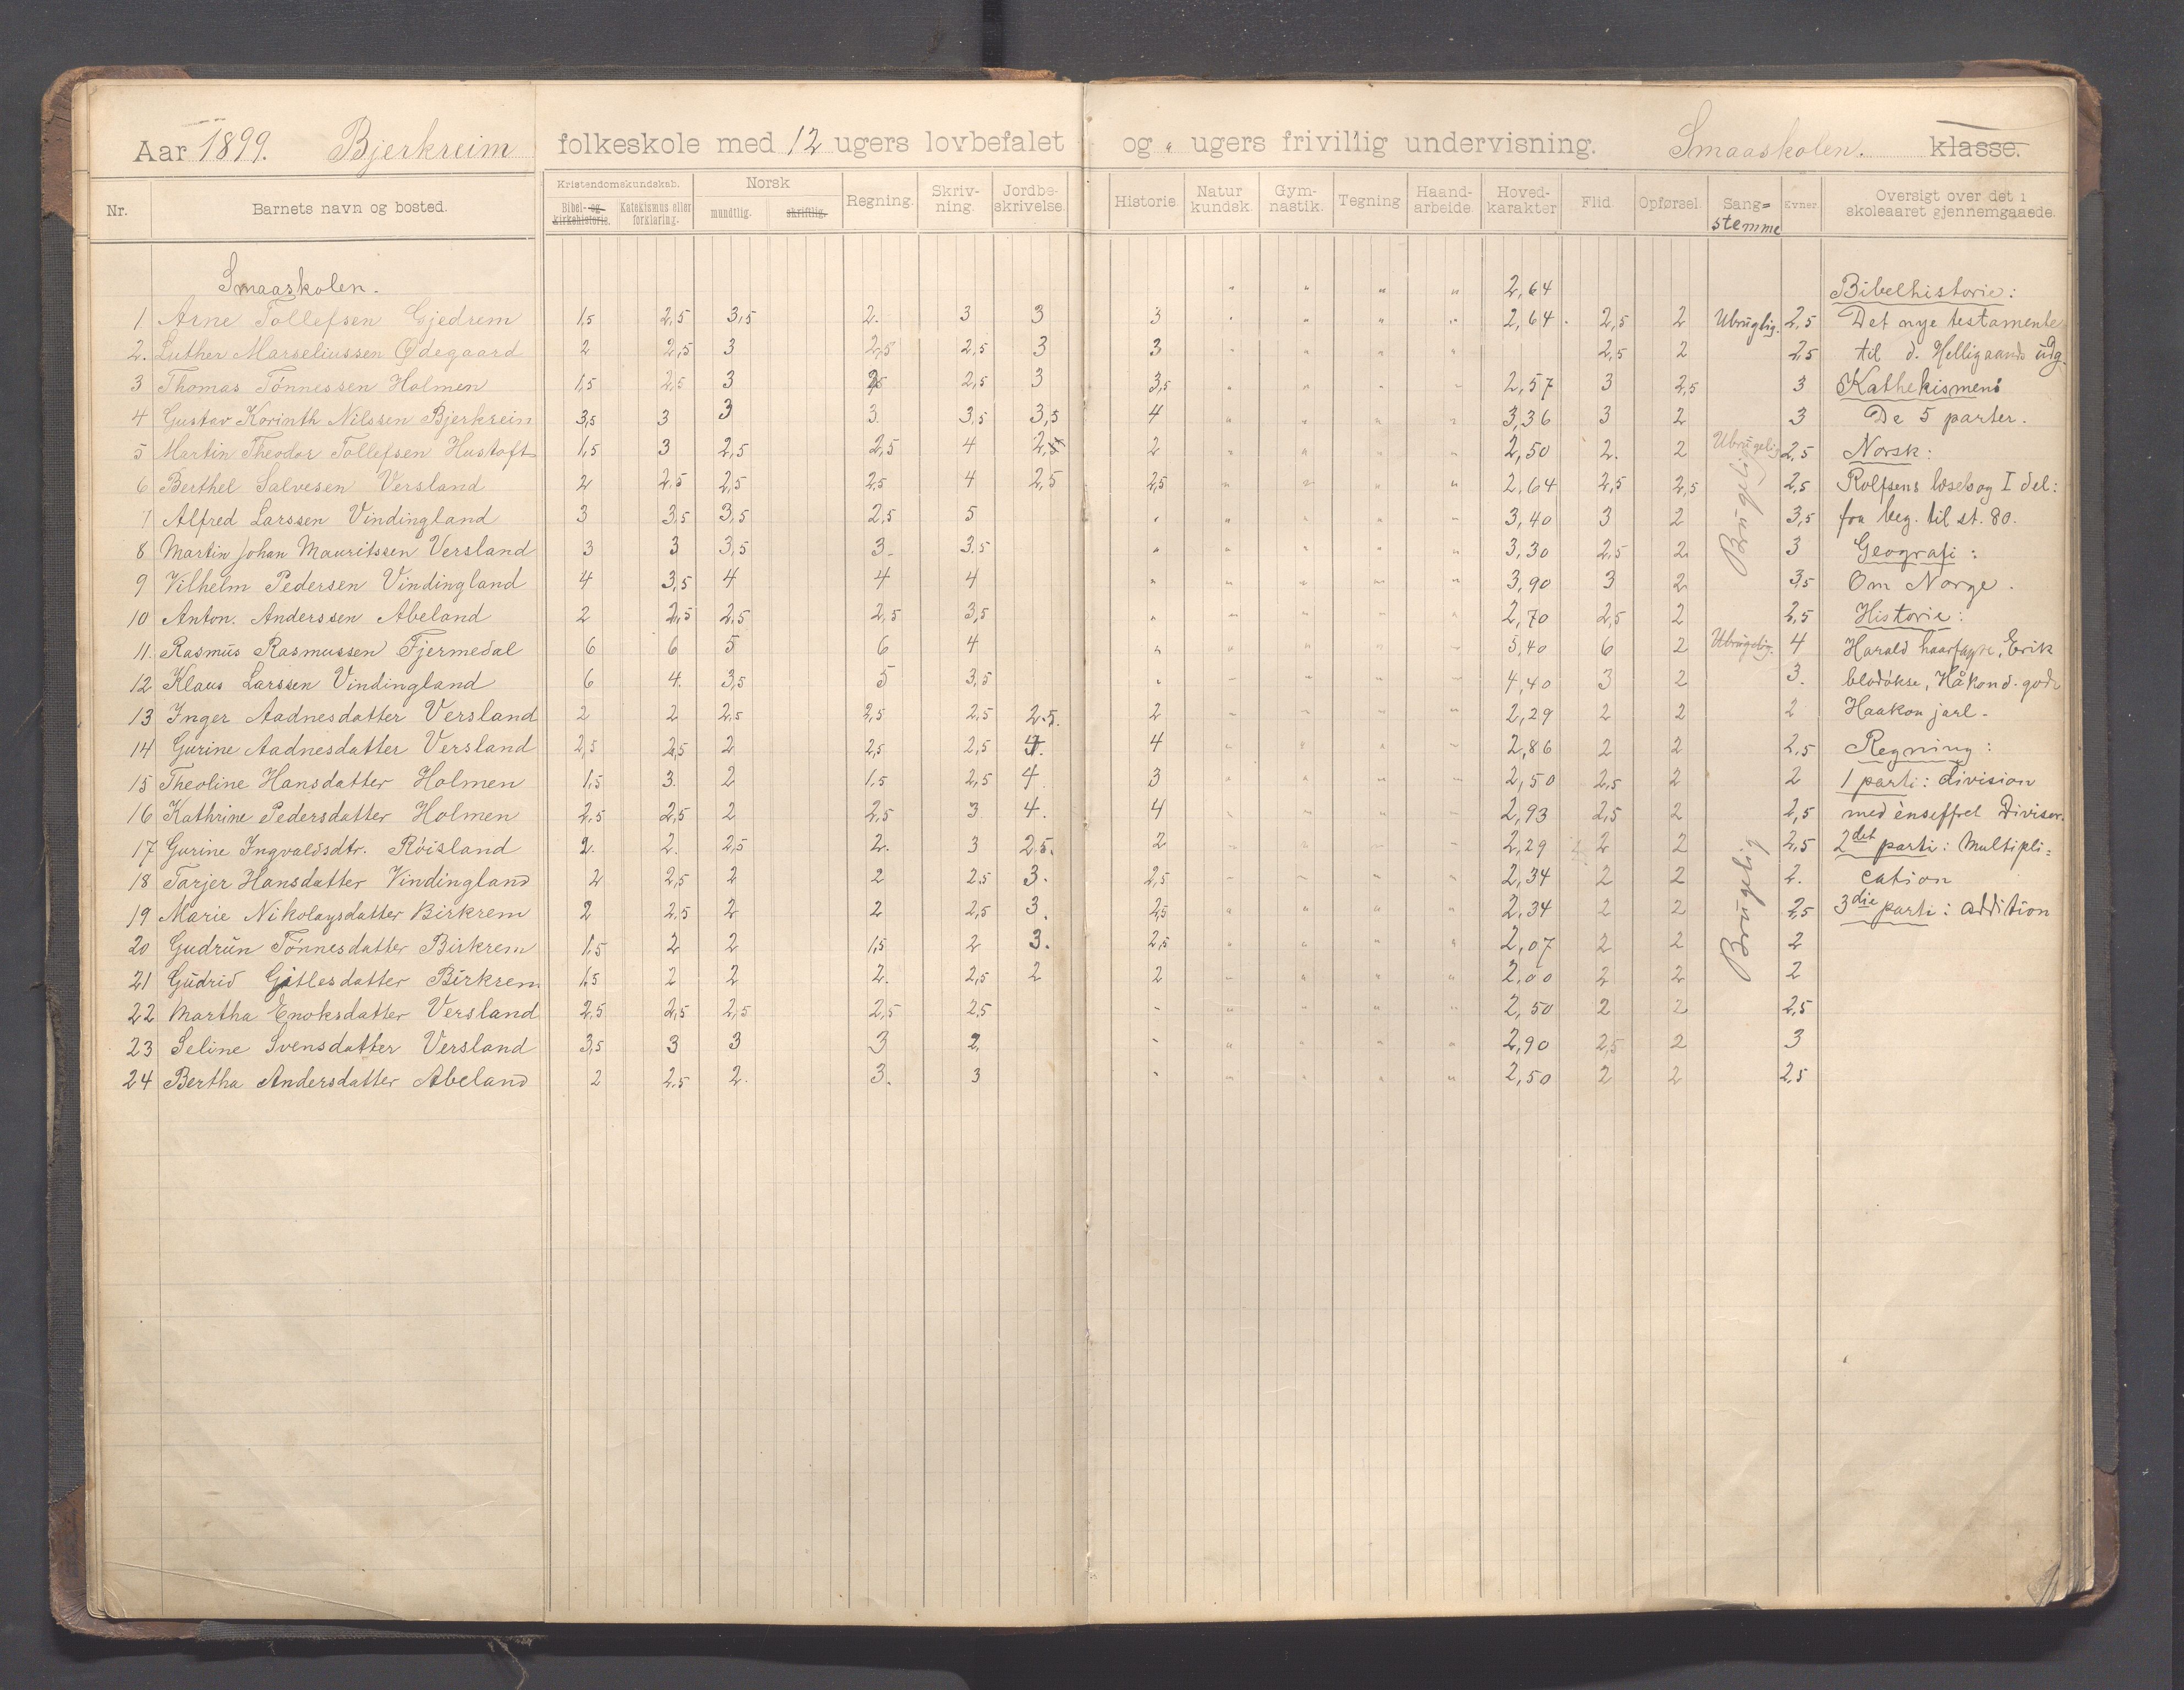 Aar 1899. Bjerkreim folkeskole med 12 ugers lovbefalet og „ ugers frivillig undervisning. Smaaskolen. klasse.
Nr. Barnets navn og bosted. Kristendomskundskab. Bibel- og kirkehistorie. Katekismus eller forklaring. Norsk mundtlig. skriftlig. Regning. Skriv-ning. Jordbe-skrivelse. Historie Natur kundsk. Gym-nastik. Tegning Haand-arbeide. Hoved-karakter Flid. Opførsel Sang=stemme Evner. Oversigt over det i skoleaaret gjennemgaaede.
Smaaskolen. „ „ „ „ 2,64 Bibelhistorie:
1 Arne Tollefsen Gjedrem 1,5 2,5 3,5 2. 3 3 3 „ „ „ „ 2,64. 2,5 2 Ubruglig. 2,5 Det nye testamente
2. Luther Marseliussen Ødegaard 2 2,5 3 2,5 2,5 3 3 „ „ „ „ 2,5 2 2,5 til d. Helligaands udg.
3 Thomas Tönnessen Holmen 1,5 2,5 3 2,5 3 3,5 „ „ „ „ 2,57 3 2,5 3 Kathekismens
4 Gustav Korinth Nilssen Bjerkreim 3,5 3 3 3. 3,5 3,5 4 „ „ „ „ 3,36 3 2 3 De 5 parter.
5 Martin Theodor Tollefsen Hustoft 1,5 3 2,5 2,5 4 2, 2 „ „ „ „ 2,50 2. 2 Ubrugelig 2,5 Norsk:
6 Berthel Salvesen Versland 2 2,5 2,5 2,5 4 2,5 2,5 „ „ „ „ 2,64 2,5 2,5 Brugelig 2,5 Rolfsens læsebog I del:
7 Alfred Larssen Vindingland 3 3,5 3,5 2,5 5 „ „ „ „ „ 3,40 3 2 3,5 fra beg. til st. 80.
8 Martin Johan Mauritssen Versland 3 3 3,5 3. 3,5 „ „ „ „ „ 3,30 2,5 2 3 Geografi:
9 Vilhelm Pedersen Vindingland 4 3,5 4 4 4 „ „ „ „ „ 3,90 3 2 3,5 Om Norge.
10 Anton. Anderssen Abeland 2 2,5 2,5 2,5 3,5 „ „ „ „ „ 2,70 2,5 2 2,5 Historie:
11. Rasmus Rasmussen Fjermedal 6 6 5 6 4 „ „ „ „ „ 5,40 6 2 Ubrugelig. 4 Harald haarfagre, Erik
12 Klaus Larssen Vindingland 6 4. 3,5 5 3,5 „ „ „ „ „ 4,40 3 2 3. blodökse, Håkon d. gode
13 Inger Aadnesdatter Versland 2 2 2,5 2,5 2,5 2.5. 2 „ „ „ „ 2,29 2 2 2 Haakon jarl.
14 Gurine Aadnesdatter Versland 2,5 2,5 2 2,5 2,5 4. 4 „ „ „ „ 2,86 2 2 2,5 Regning:
15 Theoline Hansdatter Holmen 1,5 3. 2 1,5 2,5 4 3 „ „ „ „ 2,50 2,5 2 2 1 parti: division
16 Kathrine Pedersdatter Holmen 2,5 2,5 2 2,5 3 4. 4 „ „ „ „ 2,93 2,5 2 2,5 med ènseffret Divisor.
17 Gurine Ingvaldsdtr. Röisland 2. 2. 2,5 2. 3 2.5. 2 „ „ „ „ 2,29 2 2 2,5 2det parti: Multipli=
18 Tarjer Hansdatter Vindingland 2 2,5 2 2 2,5 3. 2,5 „ „ „ „ 2,34 2 2 Brugelig 2. cation
19 Marie Nikolaysdatter Birkrem 2 2,5 2 2 2,5 3. 2,5 „ „ „ „ 2,34 2 2 2,5 3die parti: addition
20 Gudrun Tönnesdatter Birkrem 1,5 2 2 1,5 2 3. 2,5 „ „ „ „ 2,07 2 2 2
21 Gudrid Gitlesdatter Birkrem 1,5 2 2 2. 2,5 2 2 „ „ „ „ 2,00 2 2 2
22 Martha Enoksdatter Versland 2,5 2,5 2,5 2,5 2,5 „ „ „ „ „ 2,50 2 2 2,5
23 Seline Svensdatter Versland 3,5 3 3 3 2 „ „ „ „ „ 2,90 2,5 2 3
24 Bertha Andersdatter Abeland 2 2,5 2. 3. 3 „ „ „ „ „ 2,50 2 2 2,5